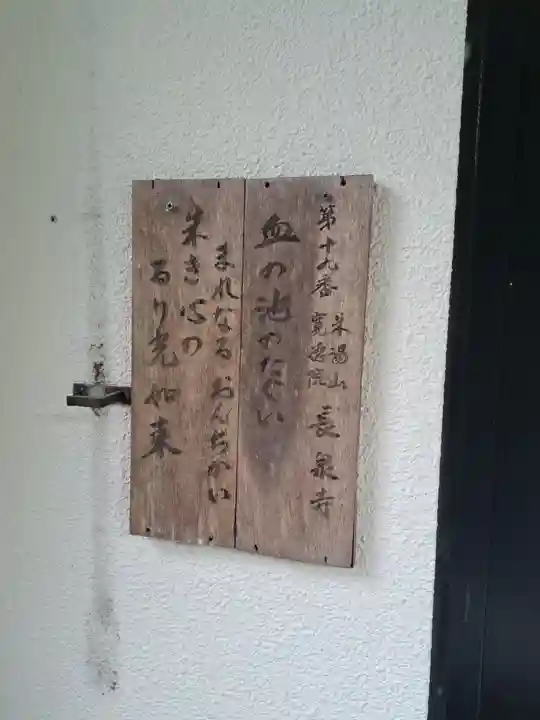 第十九番 米湯山 寛哲院 長泉寺
血の池のたぐい
まれなる おんちかい
朱き心の
るり光如来